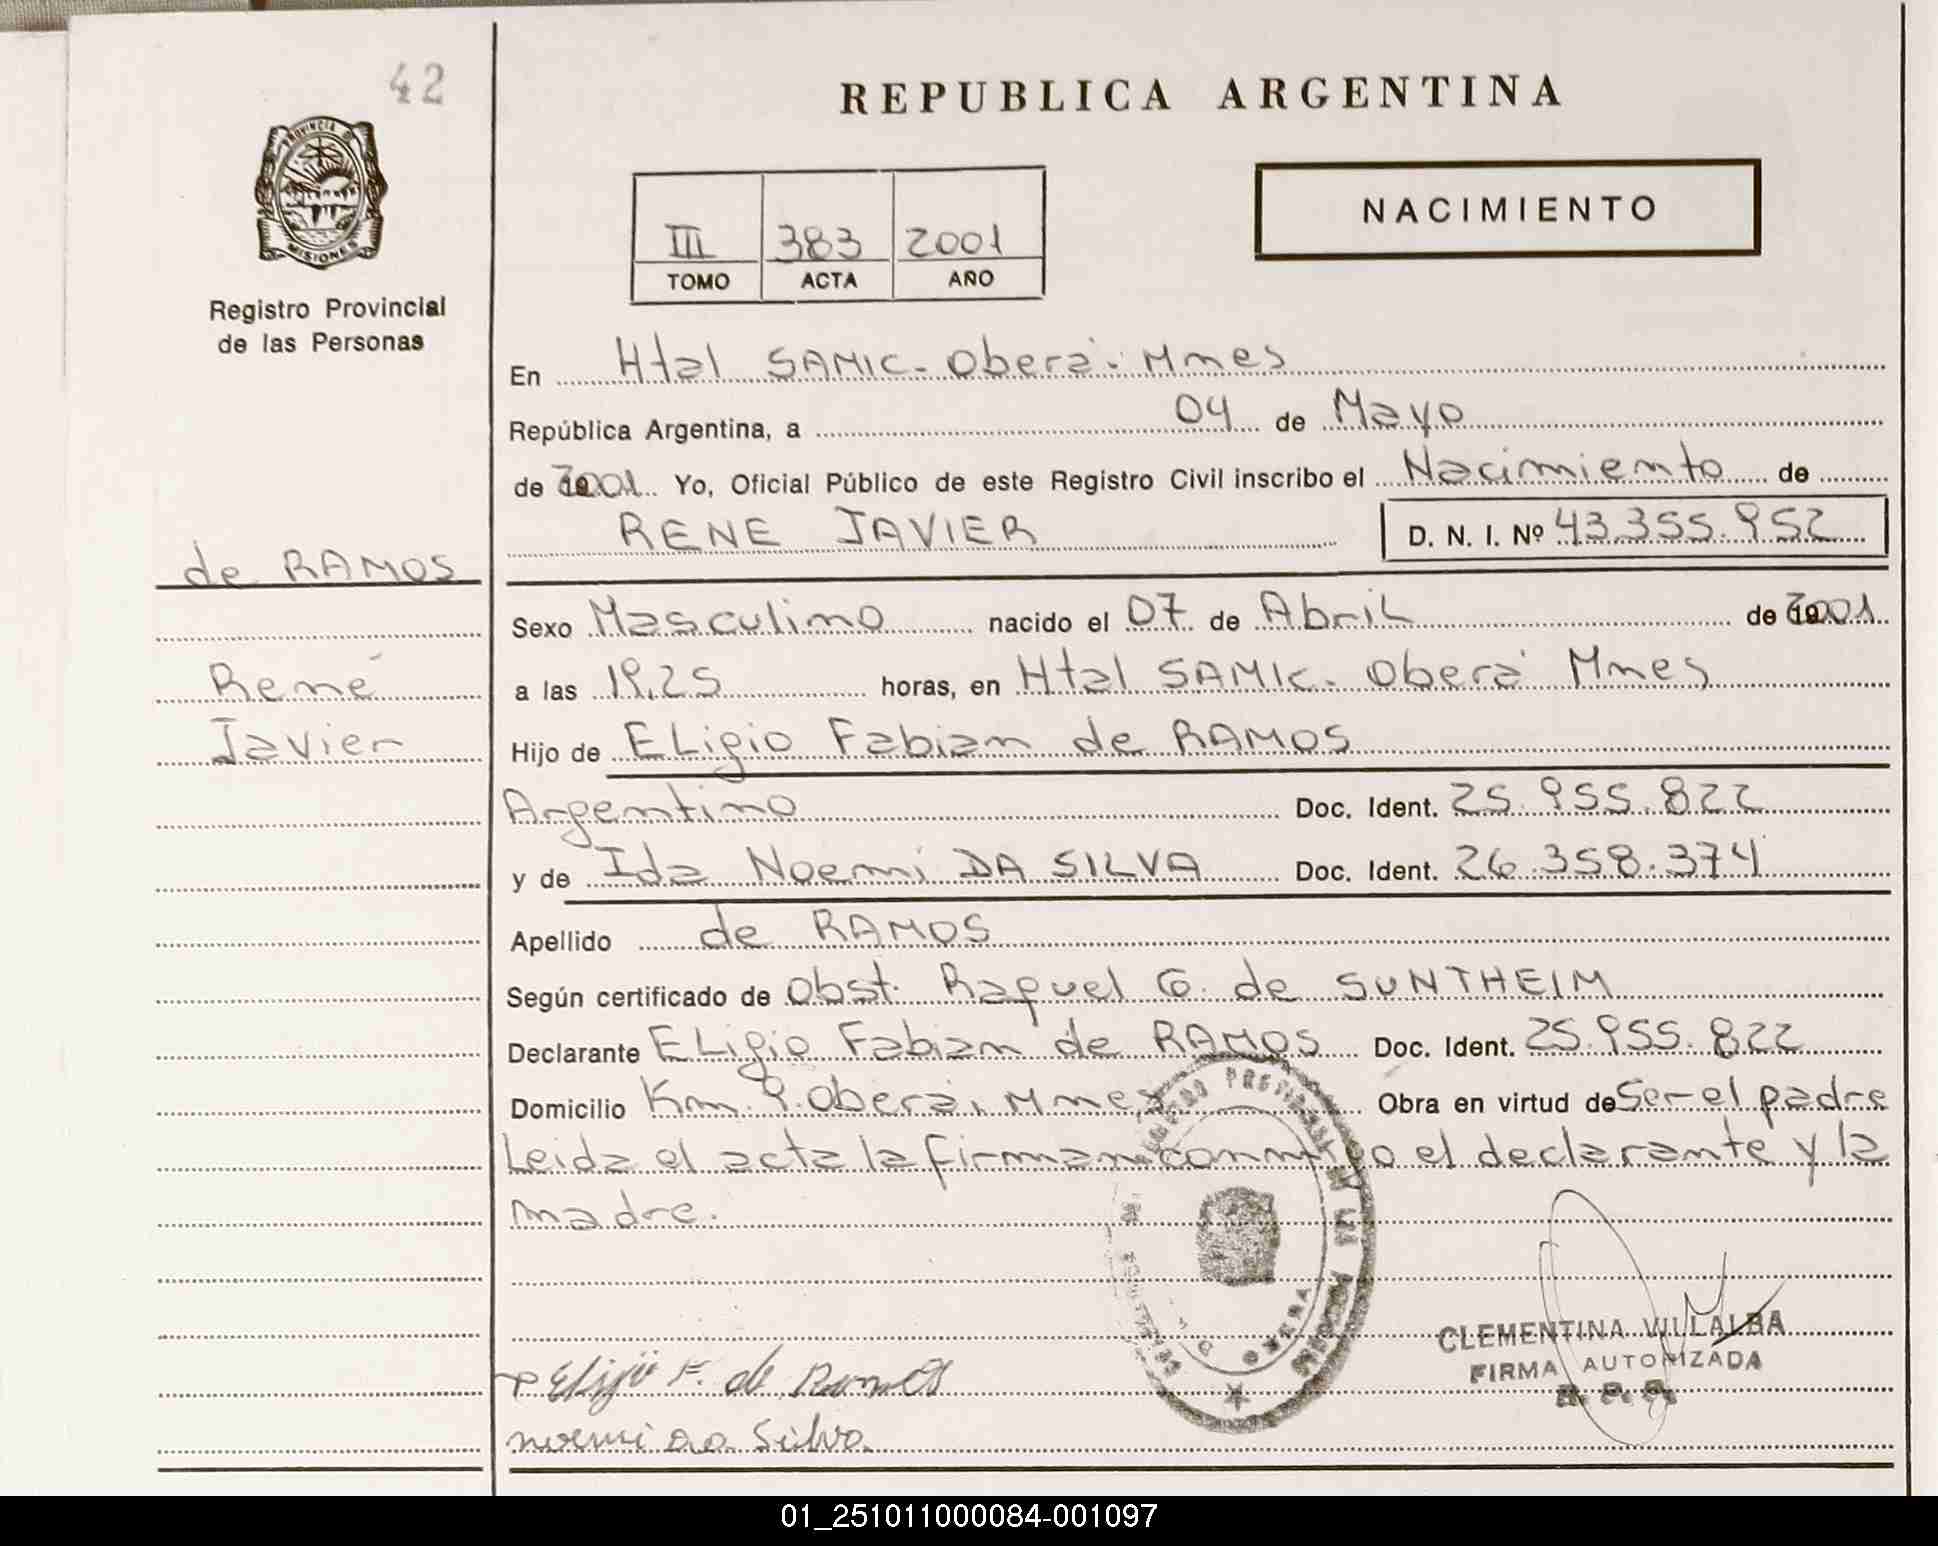 42
PROVINCIA DE
MISIONES
Registro Provincial
de las Personas
de RAMOS
René
Javier
REPUBLICA ARGENTINA
III 383 2001
TOMO ACTA AÑO
NACIMIENTO
En Htal SAMIC - Oberá - Mnes
República Argentina, a 04 de Mayo
de 2001 Yo, Oficial Público de este Registro Civil inscribo el Nacimiento de
RENE JAVIER D. N. I. Nº 43.355.952
Sexo Masculino nacido el 07 de Abril de 2001
a las 19,25 horas, en Htal SAMIC - Oberá Mnes
Hijo de ELigio Fabian de RAMOS
Argentino Doc. Ident. 25.955.822
y de Ida Noemi DA SILVA Doc. Ident. 26.358.374
Apellido de RAMOS
Según certificado de Obst. Raquel G. de SUNTHEIM
Declarante ELigio Fabian de RAMOS Doc. Ident. 25.955.822
Domicilio Km. 9. Oberá, Mnes Obra en virtud de Ser el padre
Leida el acta la firman conmigo el declarante y la
madre.
CLEMENTINA VILLALBA
FIRMA AUTORIZADA
R. P. P.
Eligio F. de Ramos
noemi da Silva.
01_251011000084-001097